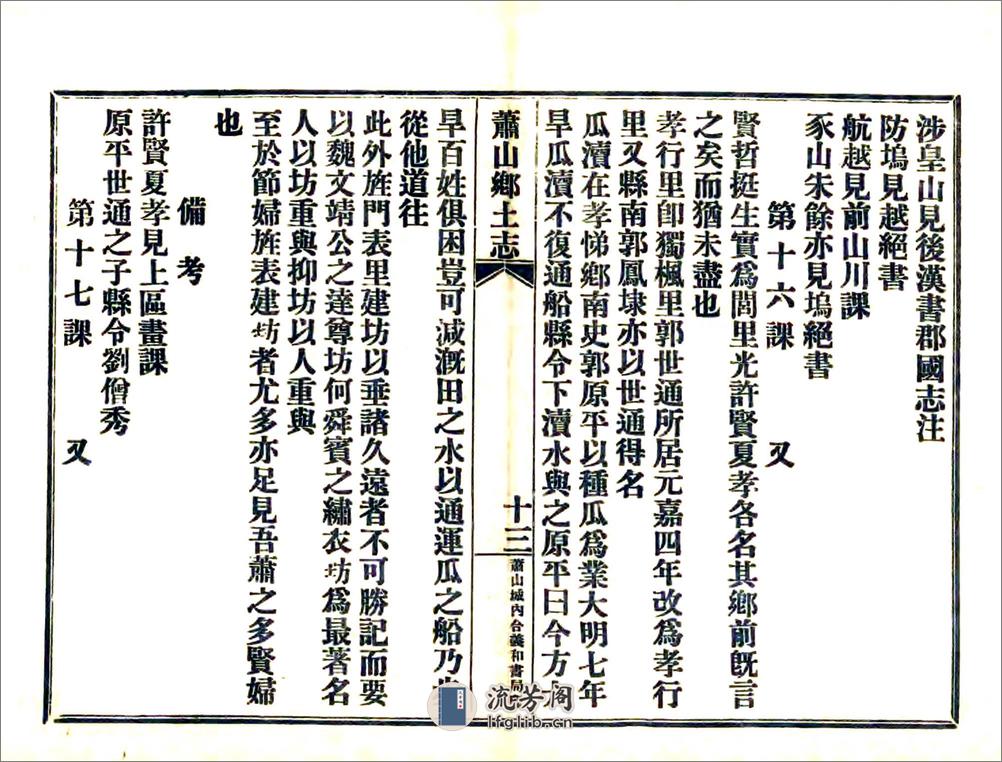 涉皇山見後漢書郡國志注
防塢見越絕書
航越見前山川課
豕山朱餘亦見塢絕書
第十六課 又
賢哲挺生實爲閭里光許賢夏孝各名其鄉前旣言
之矣而猶未盡也
孝行里卽獨楓里郭世通所居元嘉四年改爲孝行
里又縣南郭鳳埭亦以世通得名
瓜瀆在孝悌鄉南史郭原平以種瓜爲業大明七年
旱瓜瀆不復通船縣令下瀆水與之原平曰今方
蕭山鄉土志
十三
蕭山城內合義和書局
旱百姓俱困豈可減漑田之水以通運瓜之船乃
從他道往
此外旌門表里建坊以垂諸久遠者不可勝記而要
以魏文靖公之達尊坊何舜賓之繡衣坊爲最著名
人以坊重與抑坊以人重與
至於節婦旌表建坊者尤多亦足見吾蕭之多賢婦
也
備考
許賢夏孝見上區畫課
原平世通之子縣令劉僧秀
第十七課 又
流芳阁
lfglib.cn